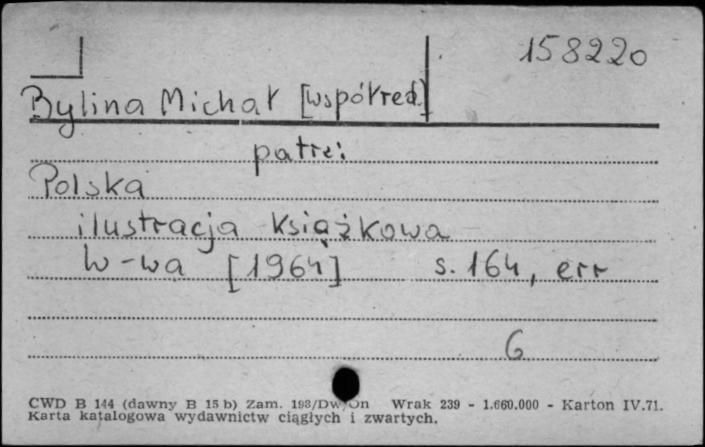 158220
Bylina Michał [współred.]
patrz:
Polska
ilustracja książkowa
W-wa [1964] s. 164, err
6
CWD B 144 (dawny B 15 b) Zam. 193/Dw/On Wrak 239 - 1.660.000 - Karton IV.71.
Karta katalogowa wydawnictw ciągłych i zwartych.